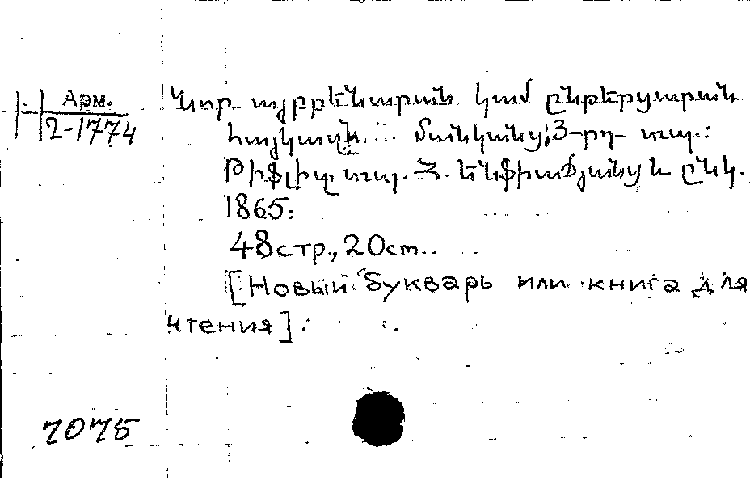 Арм.
2-1774
Նոր այբբենարան կամ ընթերցարան
հայկազն մանկանց, 3-րդ տպ.:
Թիֆլիս տպ. Հ. Ենֆիաճյանց և ընկ.
1865:
48 стр., 20 cm.
[Новый букварь или книга для
чтения].
7075